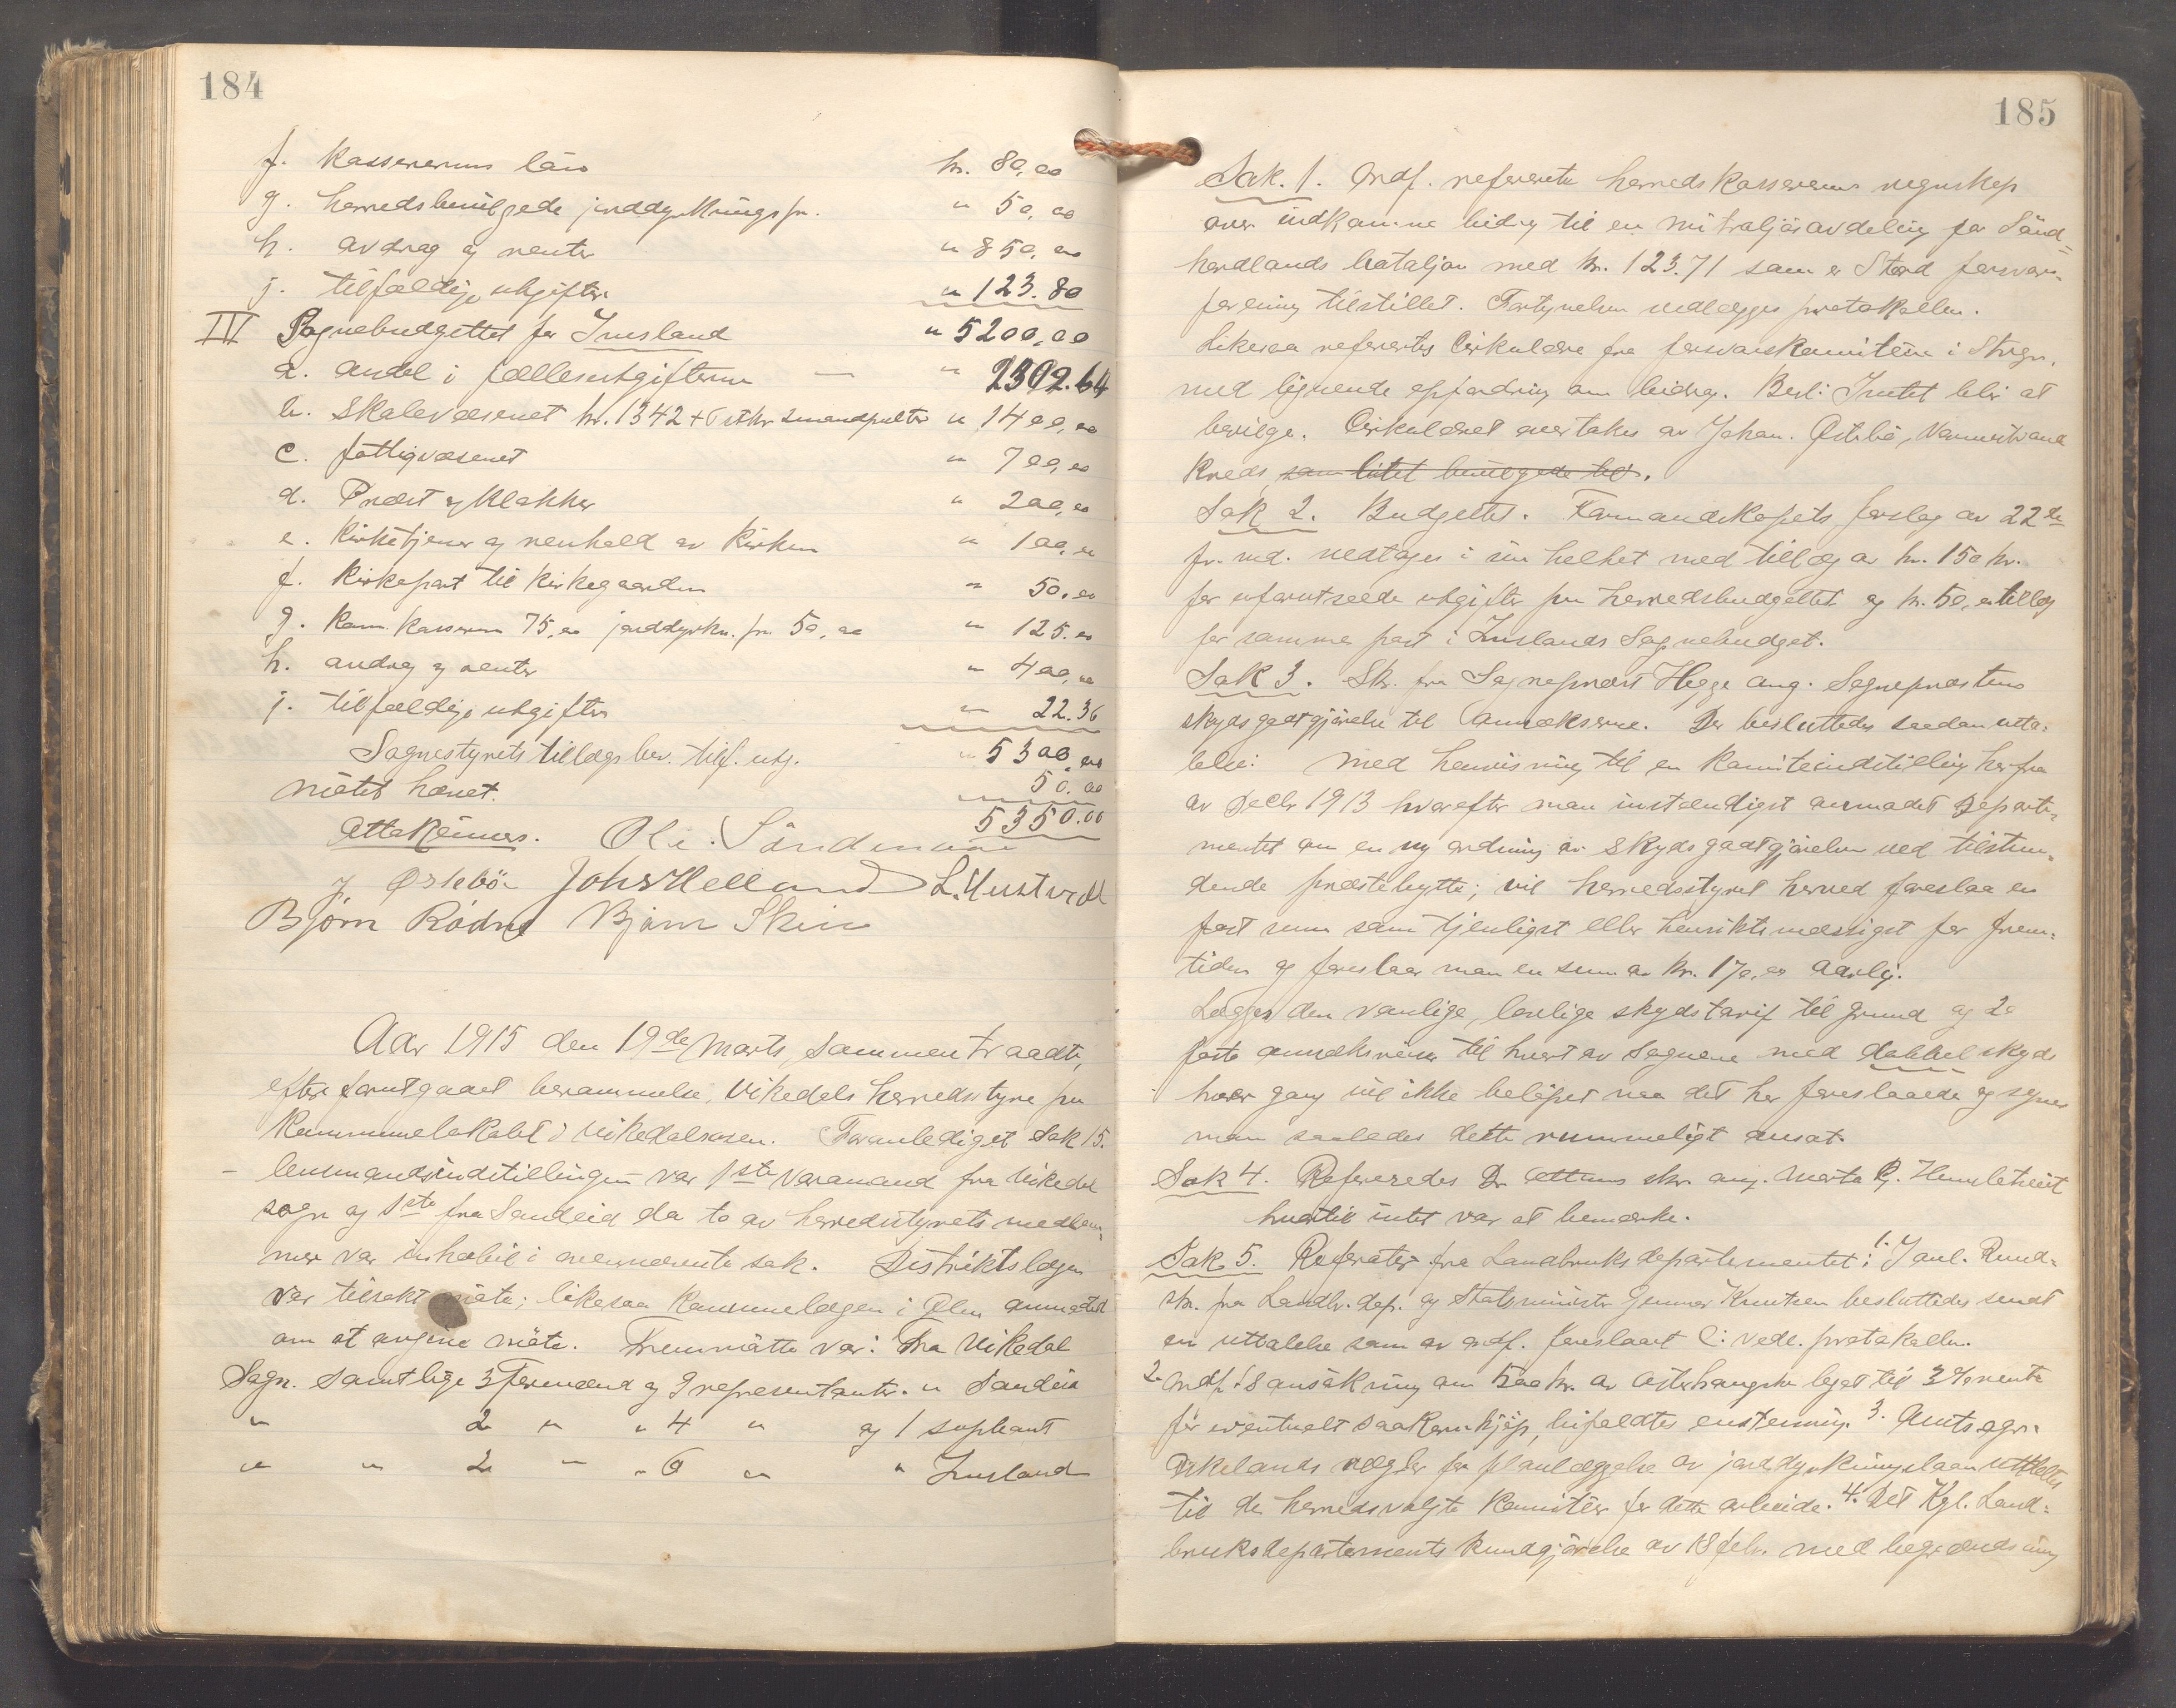 184
f. Kassererens løn kr. 80,00
g. herredsbevilgede jorddyrkningspr. " 50,00
h. avdrag og renter " 850,00
j. tilfældige utgifter " 123.80
IV Sognebudgettet for Imsland " 5200,00
a. andel i fællesutgifterne — " 2302.64
b. Skolevæsenet kr. 1342 + 5 stkr 2mandpulter " 1400,00
c. fattigvæsenet " 700,00
d. Præst og Klokker " 200,00
e. Kirketjener og renhold av Kirken " 100,00
f. Kirkepart til Kirkegaarden " 50.00
g. Kom. Kasseren 75,00 jorddyrkn. pr. 50,00 " 125.00
h. avdrag og renter " 400,00
j. tilfældige utgifter " 22.36
Sognestyrets tillægsbev. tilf. utg. " 5300,00
Mötet hævet. 50.00
Atta Rönnes. Ole. Söndenaa 5350.00
J Østebö Johs Helland L. Mustvedt
Björn Rödne Bjørn Skeie
Aar 1915 den 19de Marts, sammentraadte,
efter forutgaaet berammelse, Vikedals herredsstyre paa
Kommunelokalet i Vikedalsosen. Foranlediget sak 15.
– lensmandsindstillingen – var 1ste varamand fra Vikedal
sogn og 1ste fra Sandeid da to av herredsstyrets medlem-
mer var inhabil i nævnte sak. Distriktslægen
var tilsakt möte; likesaa Kommunelægen i Ølen anmodet
om at avgive möte. Fremmötte var: Fra Vikedal
Sogn. Samtlige 3 Formænd og 9 representanter. " Sandeid
" 2 " " 4 " og 1 supleant
" " 2 " " 6 " " Imsland
185
Sak. 1. Ordf. refererte herredskassererens regnskap
over indkomne bidrag til en mitraljøsavdeling for Sönd=
hordlands bataljon med kr. 123.71 som er Stord forsvars-
forening tilstillet. Fortegnelsen vedlægges protokollen.
Likesaa refertes Cirkulære fra forsvarskomiteen i Stvgr.
med lignende opfordring om bidrag. Besl: Intet blir at
bevilge. Cirkulæret overtakes av Johan. Østebö, Vannestrand
Kreds, som litet bevilgede til.
Sak 2. Budgettet. Formandskapets forslag av 22de
fr. md. vedtages i sin helhet med tillæg av kr. 150 kr.
for uforutseede utgifter paa herredsbudgettet og kr. 50,00 tillæg
for samme post i Imslands Sognebudget.
Sak 3. Skr. fra Sogneprest Hegge ang. Sogneprestens
skydsgodtgjörelse til annekserne. Der besluttedes saadan utta-
lelse: Med henvisning til en komiteindstilling herfra
av Decbr 1913 hvorefter man instændigst anmodet Departe-
mentet om en ny ordning av skydsgodtgjörelsen ved tilstun-
dende prestebytte; vil herredsstyret herved foreslaa en
fast sum som tjenligst eller hensiktsmæssigst for frem-
tiden og foreslaar man en sum av kr. 170,00 aarlig.
Lægges den vanlige, lovlige skydstarif til grund og 20
faste anneksreiser til hvert av Sognene med dobbel skyds
hver gang vil ikke beløpet naa det her foreslaaede og synes
man saaledes dette rummeligt ansat.
Sak 4. Refereredes Dr. Attums skr. ang. Marta R. Humlatveit
hvortil intet var at bemærke.
Sak 5. Referater fra Landbruksdepartementet: 1. I anl. Rund-
skr. fra Landb. dep. og Statsminister Gunnar Knutsen besluttedes sendt
en uttalelse som av ordf. foreslaaet l: vedl. protokollen.
2. Ordf.'s ansökning om 500 kr. av Osterhaugske legat til 3% rente
for eventuelt saakornkjöp, bifaldtes enstemmig. 3. Amtsagr.
Årkelands regler for planlæggelse av jorddyrkningslaan utdeltes
til de herredsvalgte komitéer for dette arbeide. 4. Det Kgl. Land-
bruksdepartements kundgjörelse av 18 feb. med begrændsning